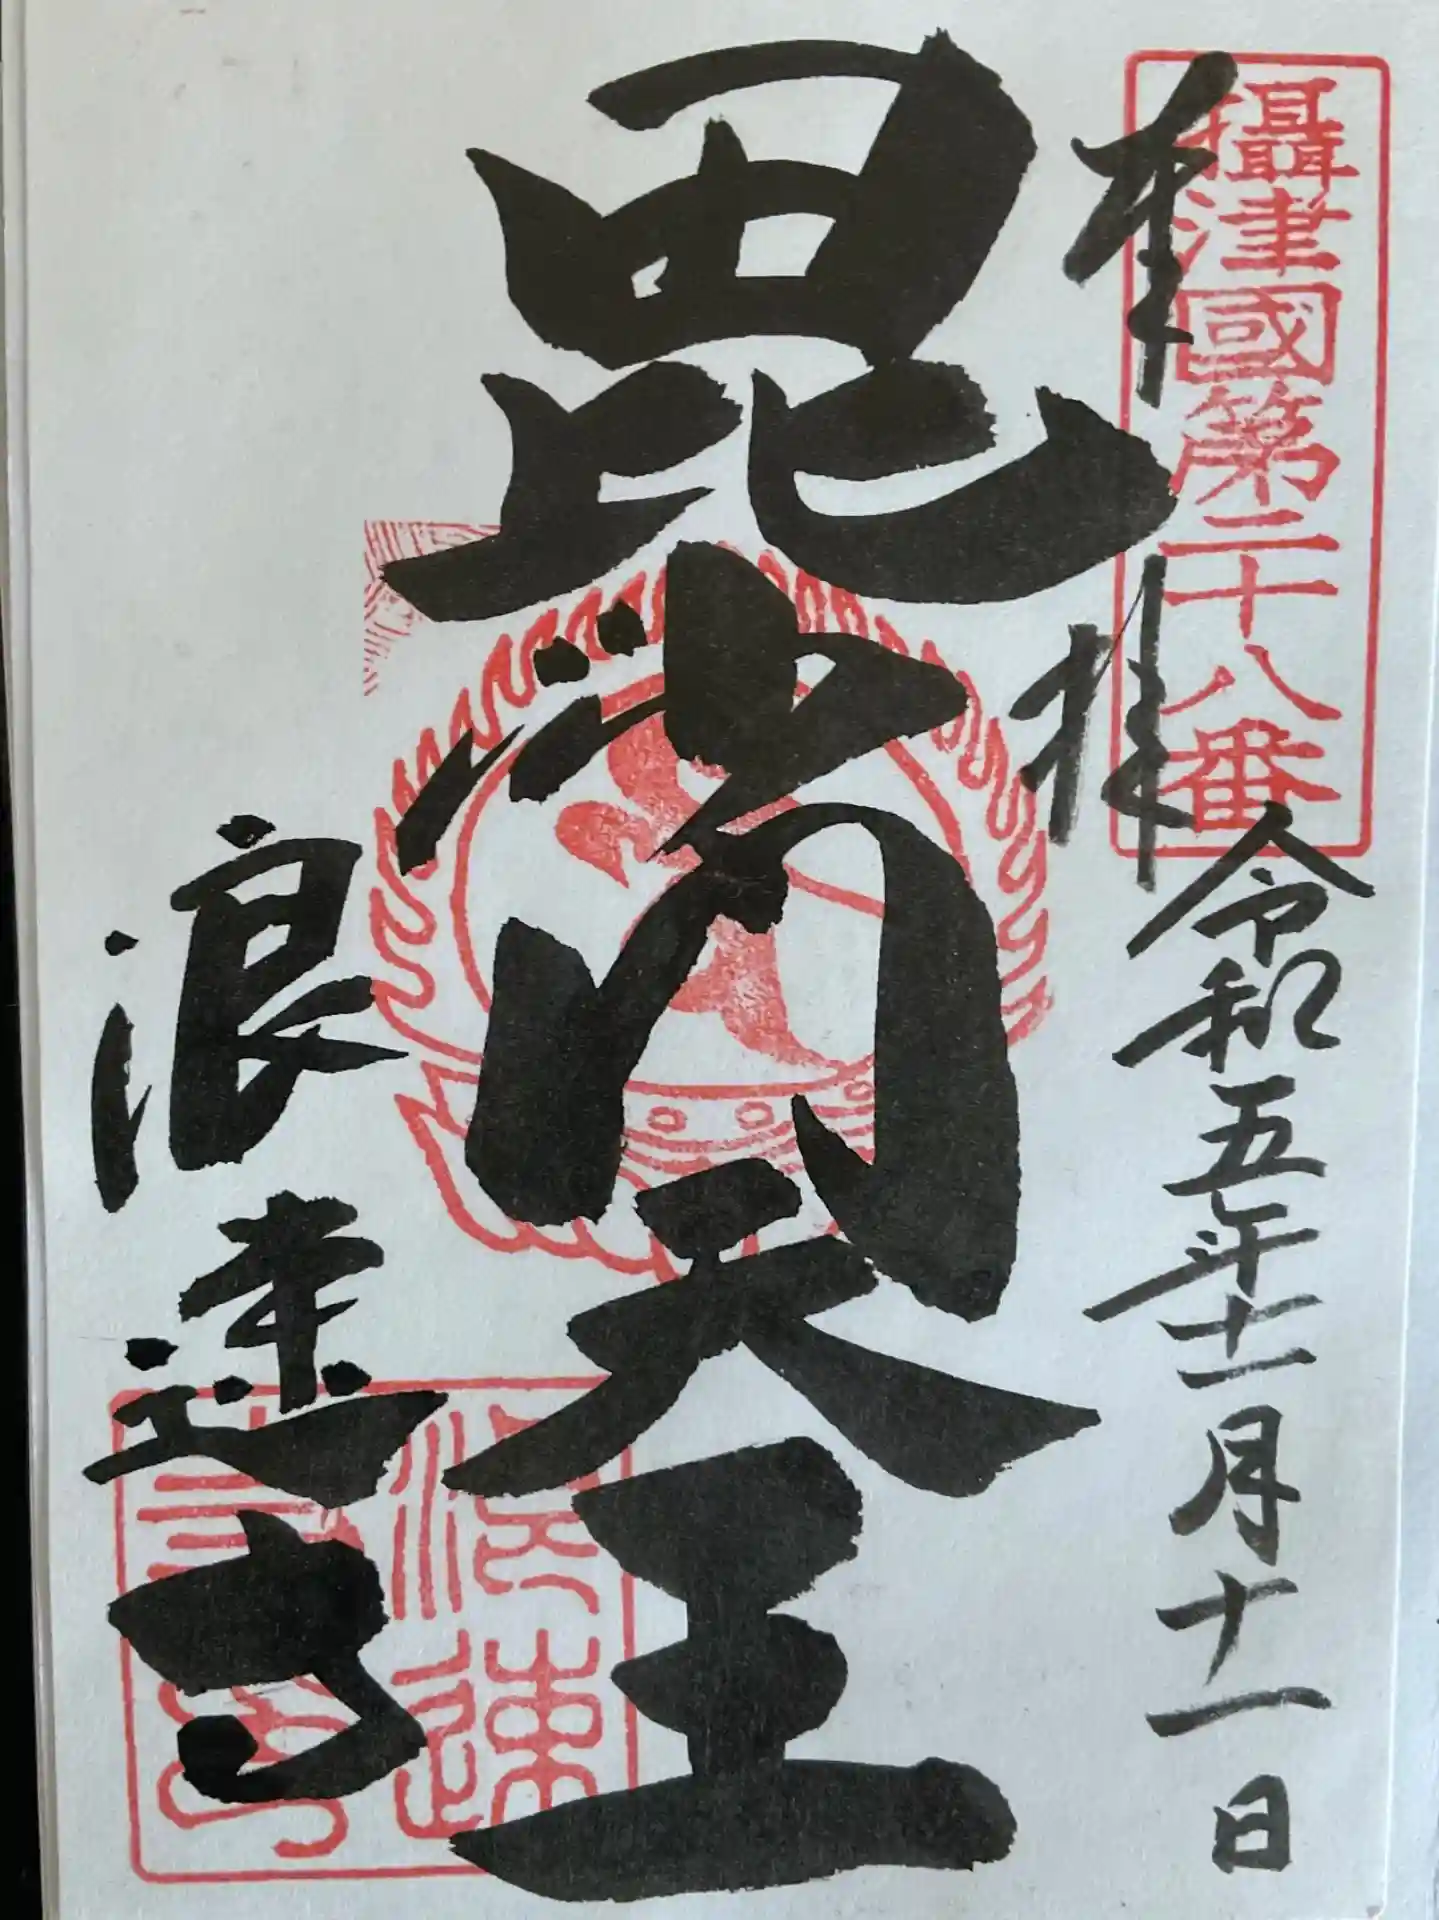 攝津國第二十八番
奉拝
令和五年十一月十一日
毘沙門天王
浪速寺
浪速寺